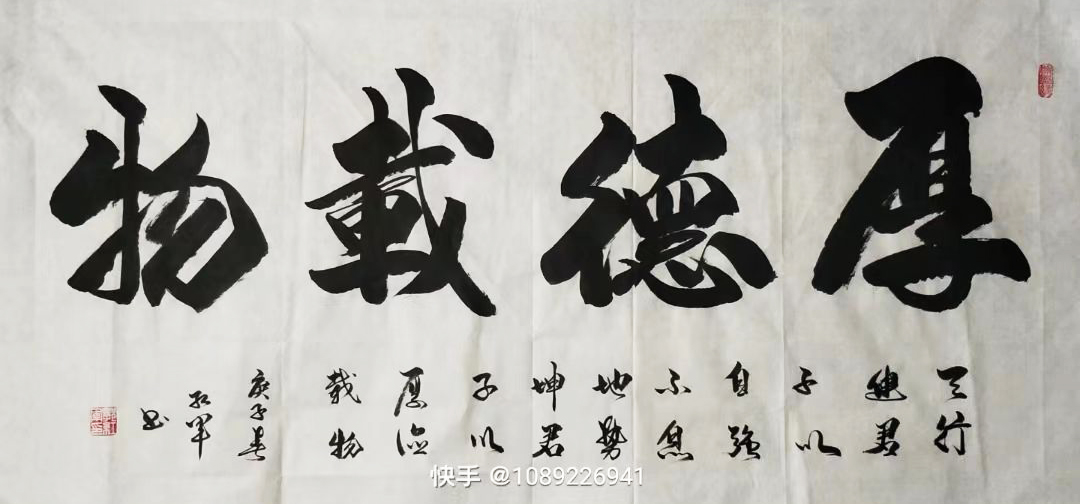 厚德載物
天行
健君
子以
自强
不息
地勢
坤君
子以
厚德
載物
庚子春
书
快手 @1089226941